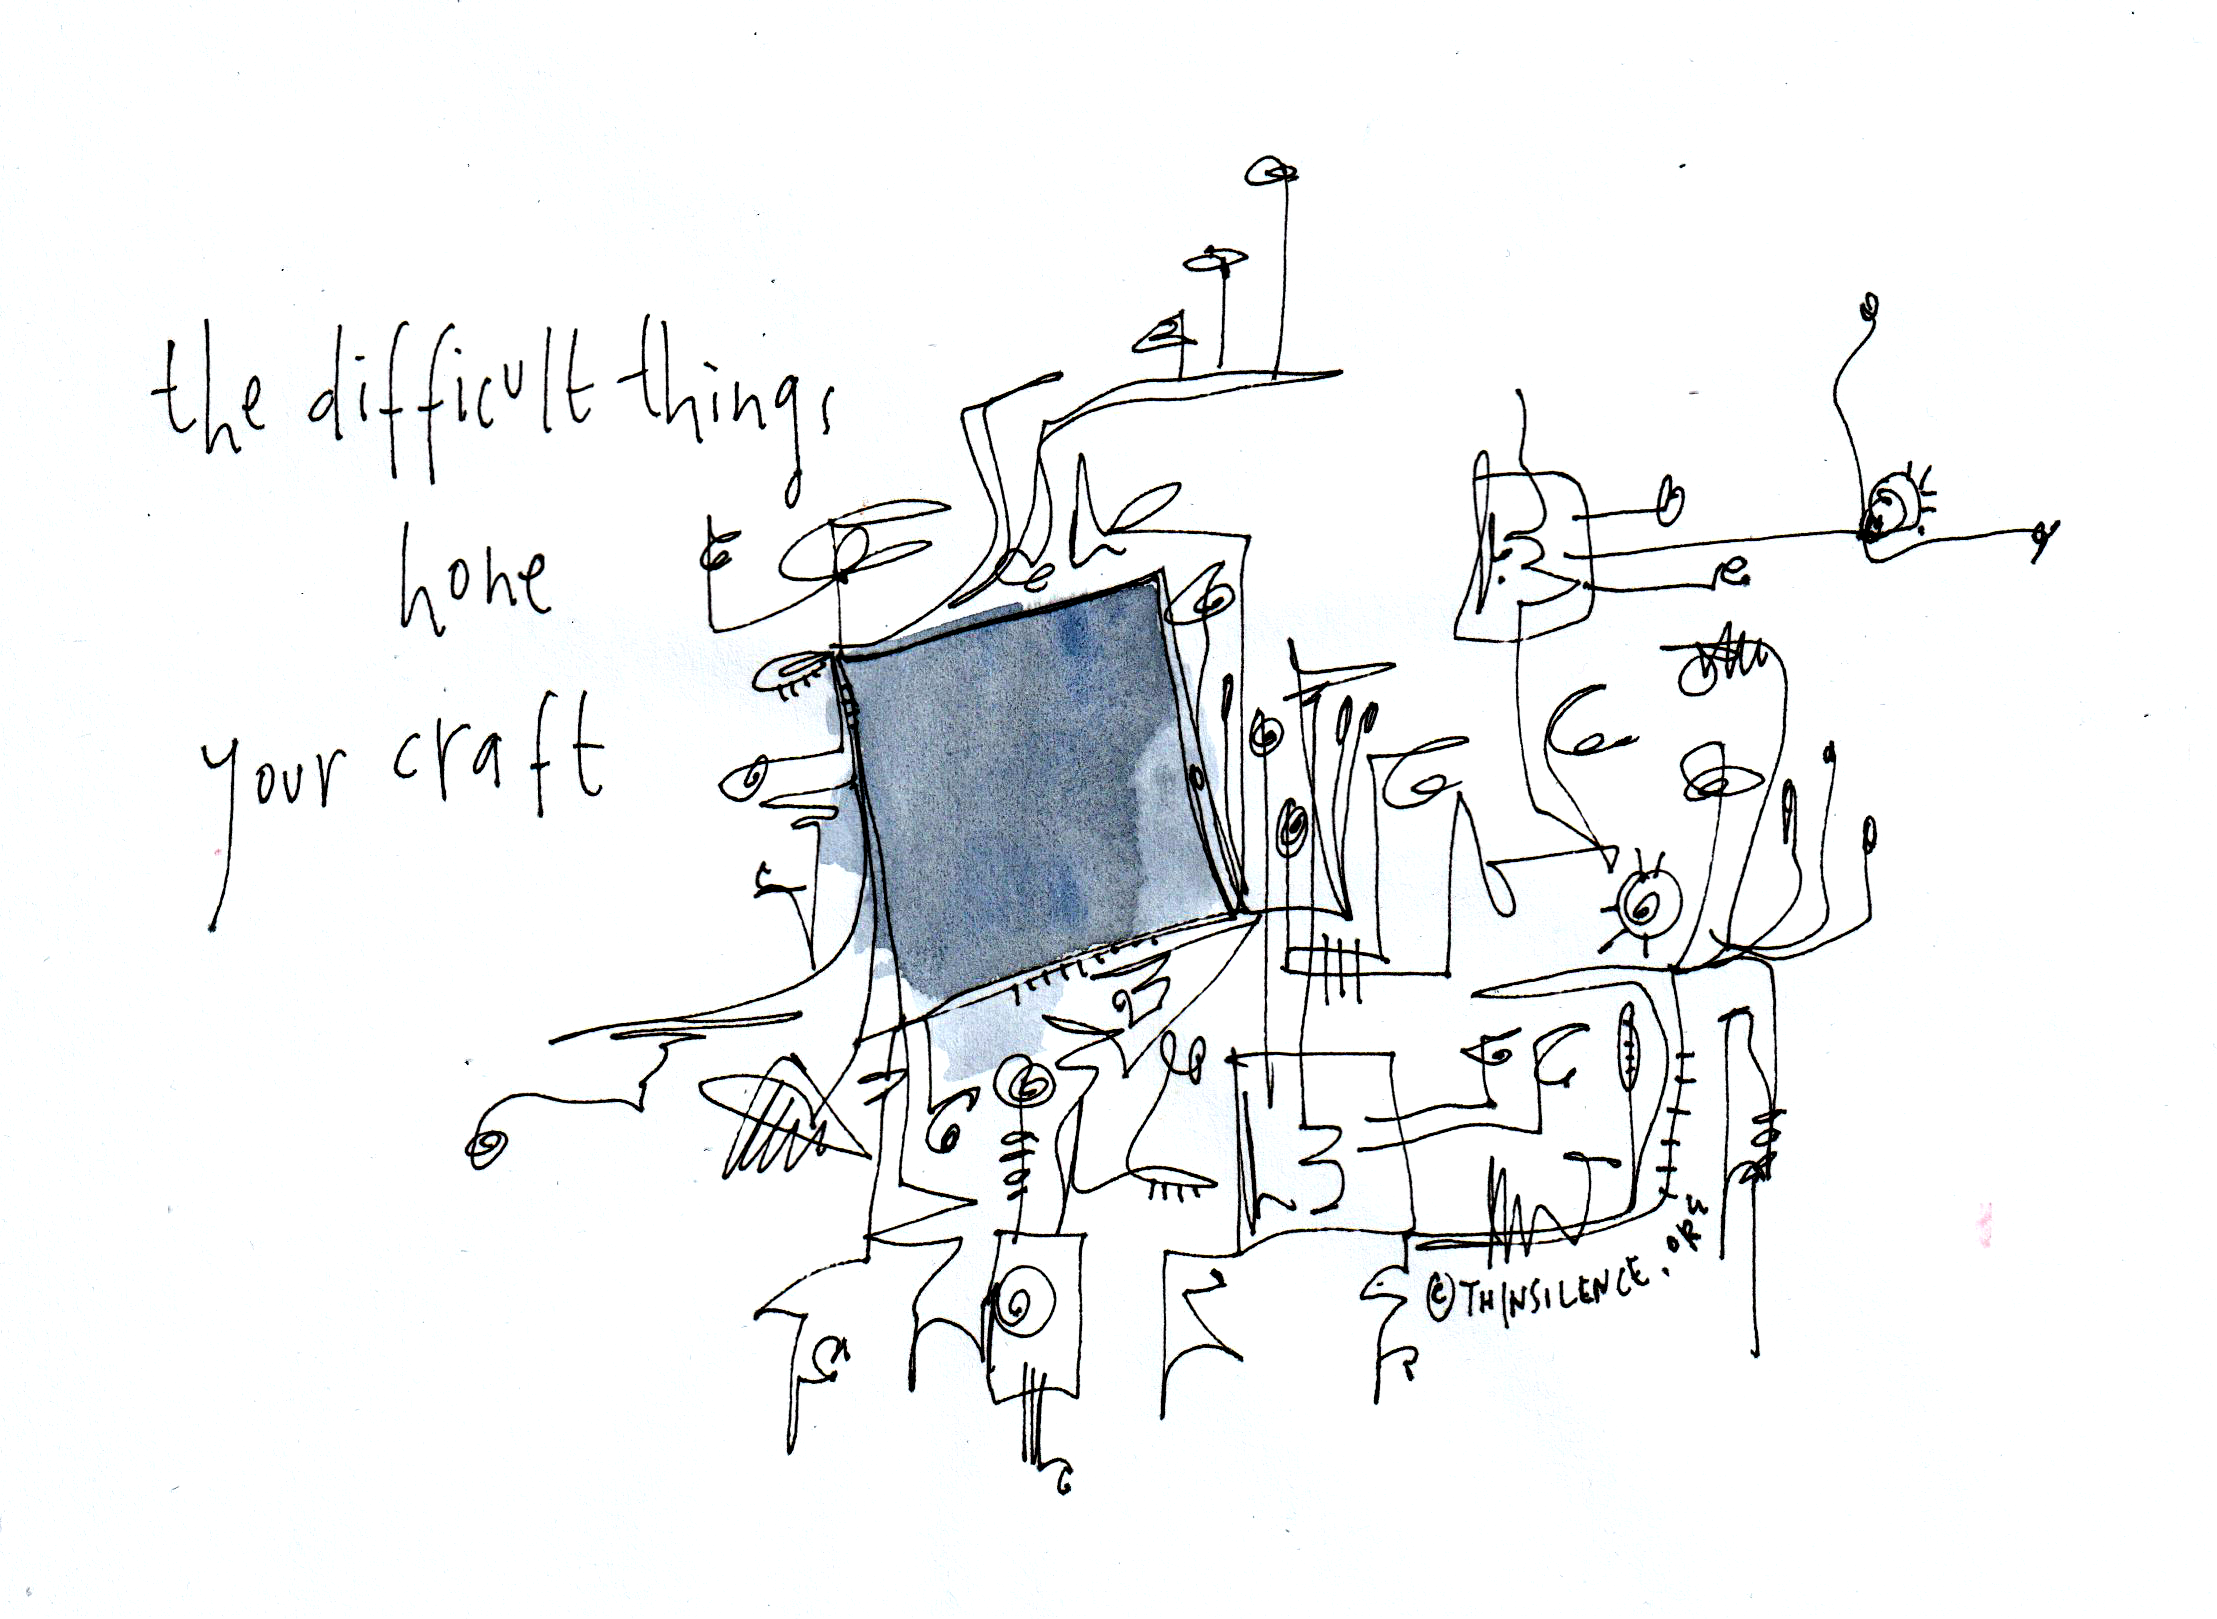 the difficult things
hone
your craft
©THINSILENCE.ORG